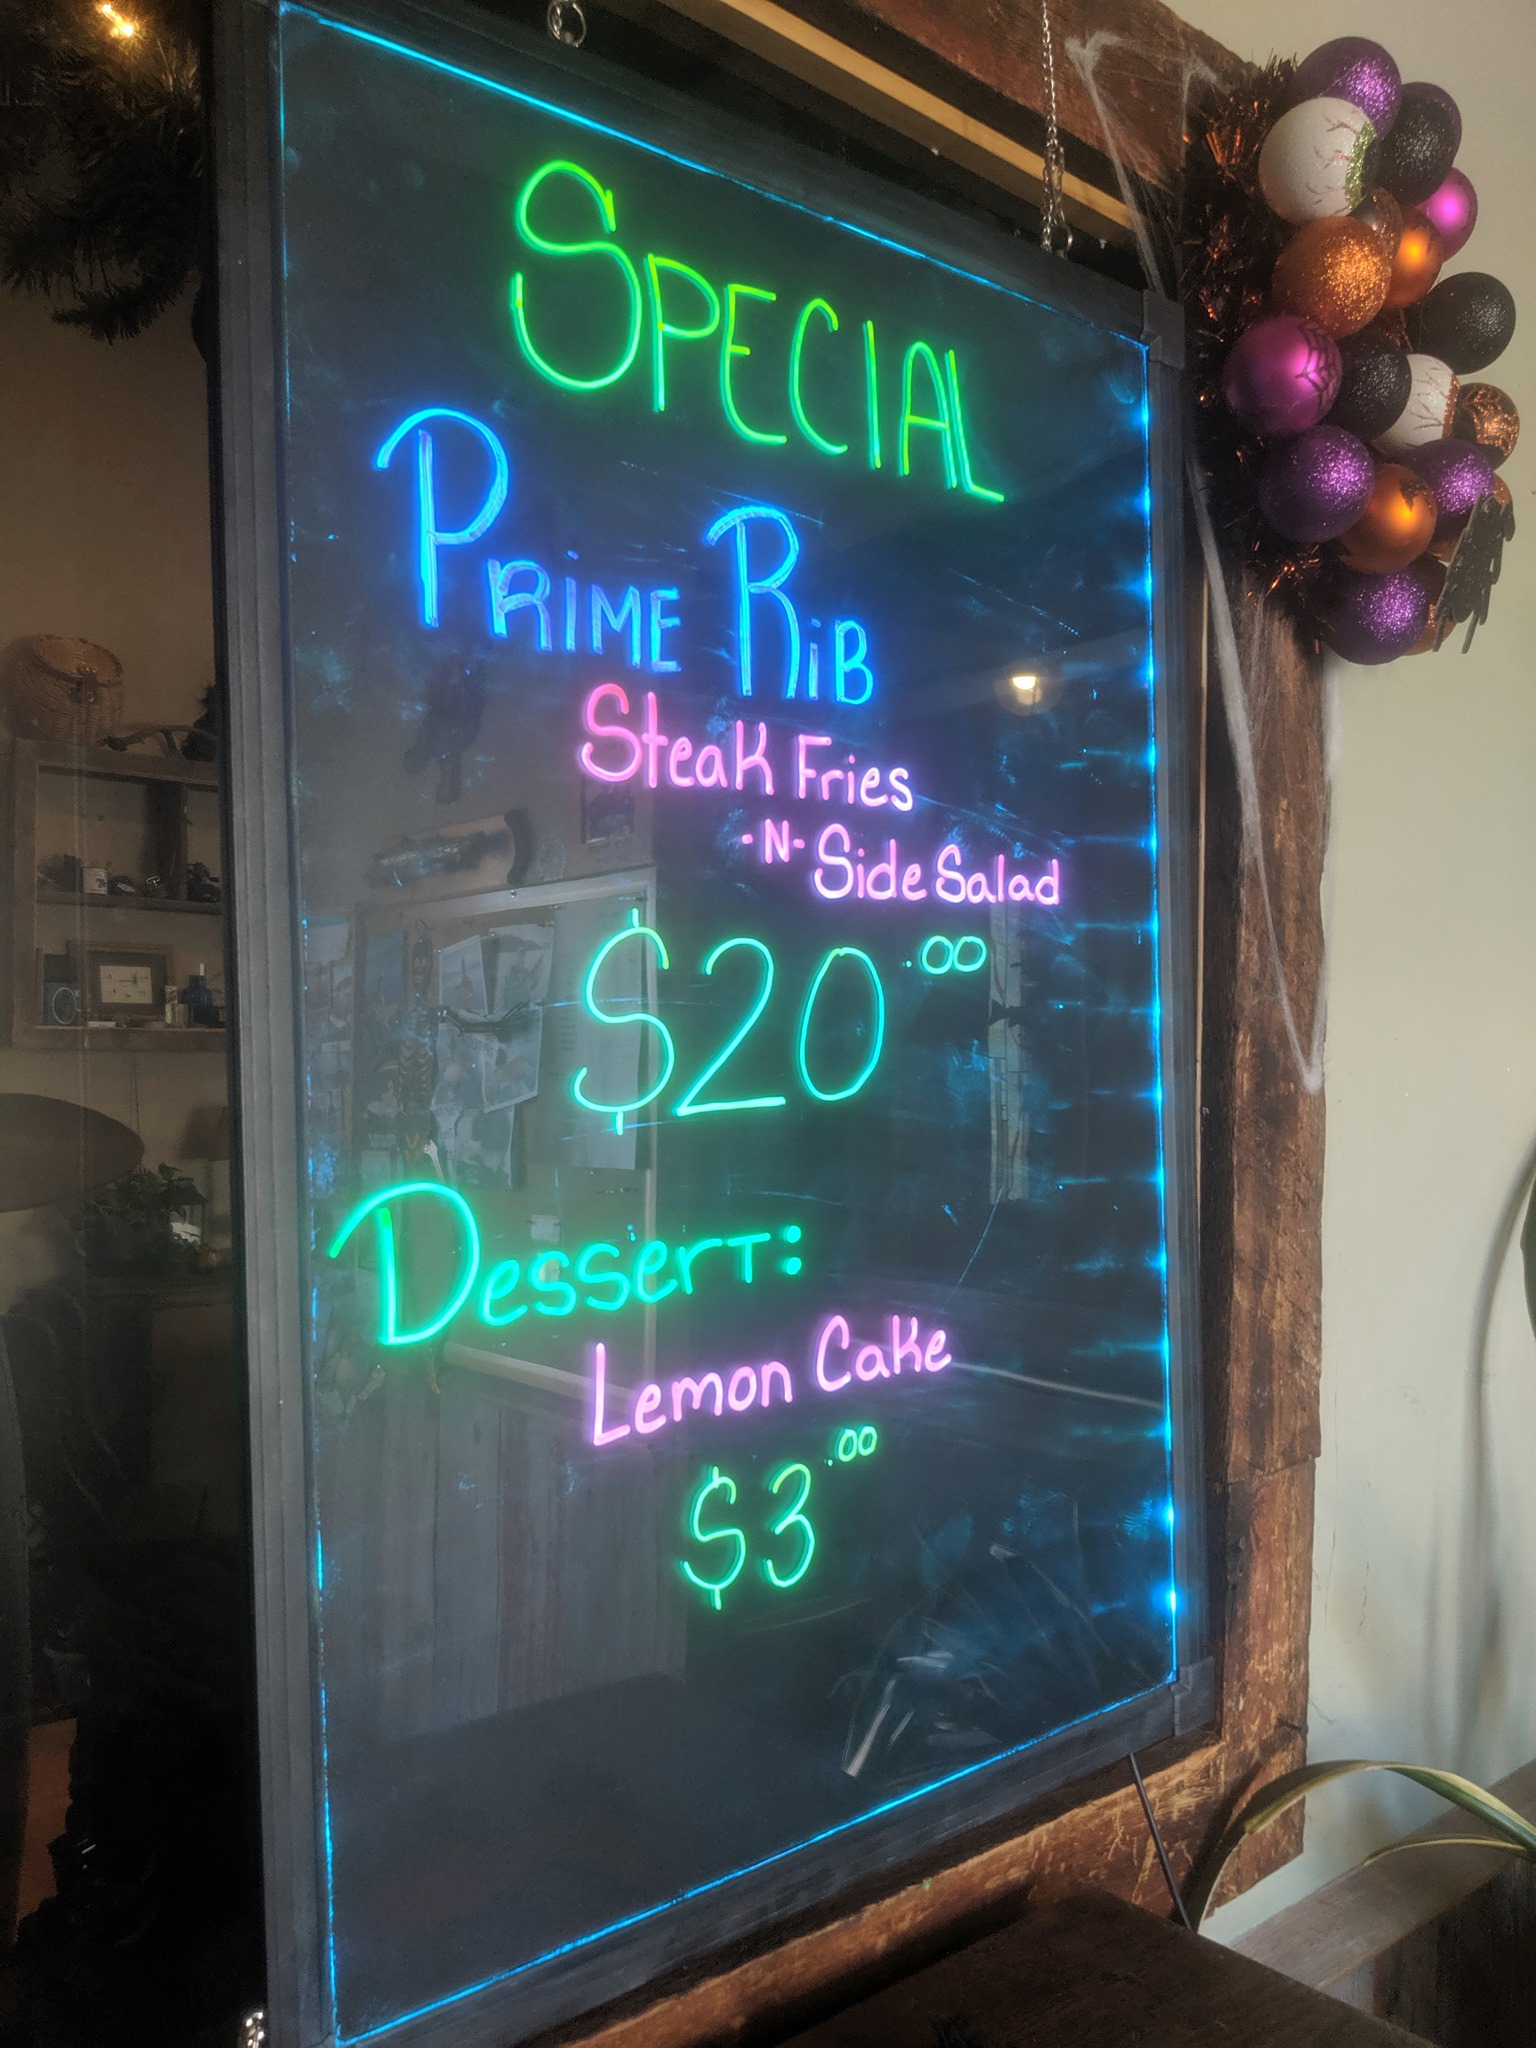 SPECIAL
PRIME RiB
Steak Fries
-N- Side Salad
$20.00
Dessert:
Lemon Cake
$3.00